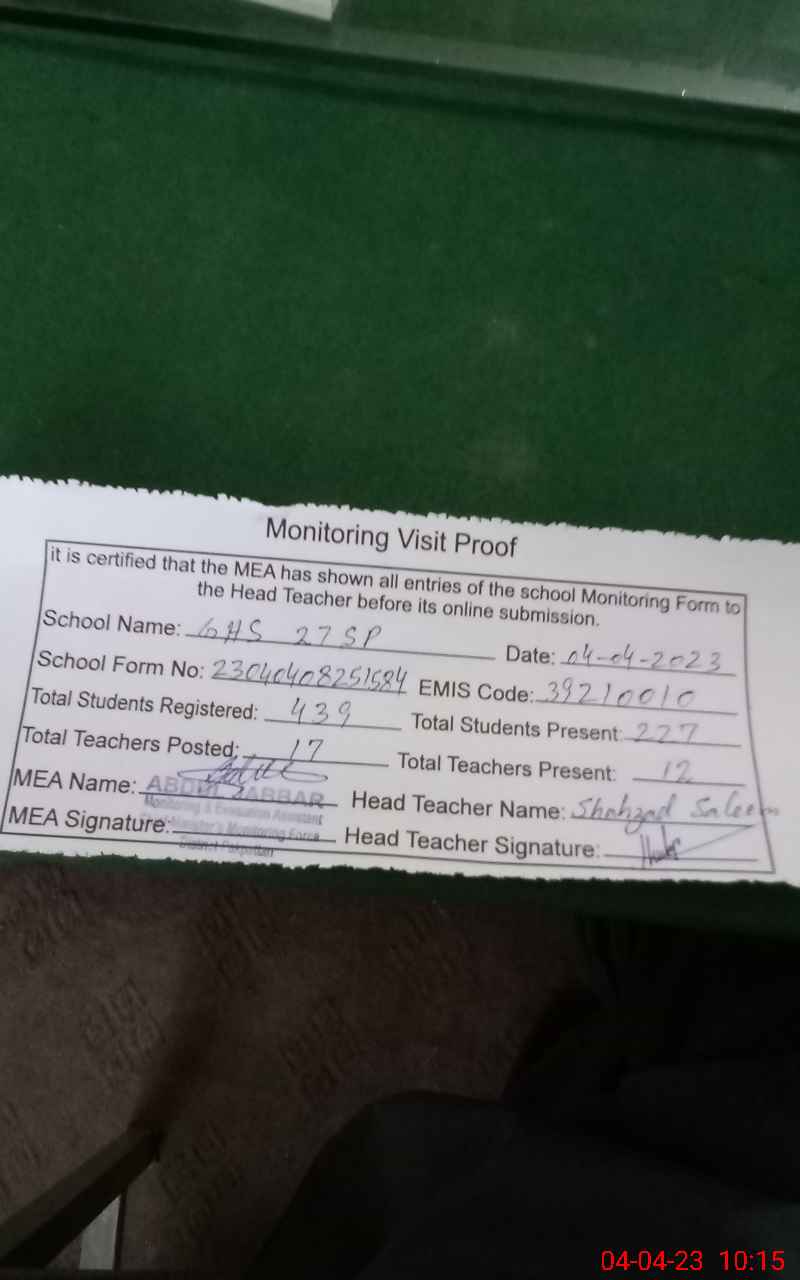 Monitoring Visit Proof
it is certified that the MEA has shown all entries of the school Monitoring Form to
the Head Teacher before its online submission.
School Name: GHS 27 SP Date: 04-04-2023
School Form No: 23040408251584 EMIS Code: 39210010
Total Students Registered: 439 Total Students Present: 227
Total Teachers Posted: 17 Total Teachers Present: 12
MEA Name: ABDUL JABBAR Head Teacher Name: Shahzad Saleem
Monitoring & Evaluation Assistant
MEA Signature: Minister's Monitoring Force Head Teacher Signature:
District Pakpattan
04-04-23 10:15